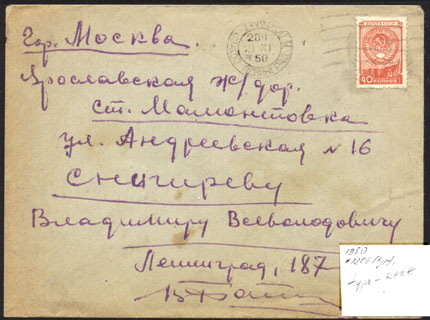 гор. Москва.
Ярославская ж/дор.
ст. Мамонтовка
ул. Андреевская № 16
Снигиреву
Владимиру Всеволодовичу
Ленинград, 187
50
40 КОПЕЕК
1950